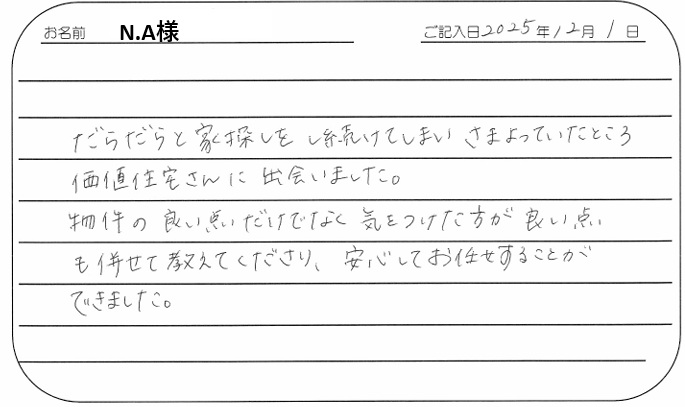 お名前 N.A様 ご記入日2025年12月1日
だらだらと家探しをし続けてしまいさまよっていたところ
価値住宅さんに出会いました。
物件の良い点だけでなく気をつけた方が良い点
も併せて教えてくださり、安心してお任せすることが
できました。